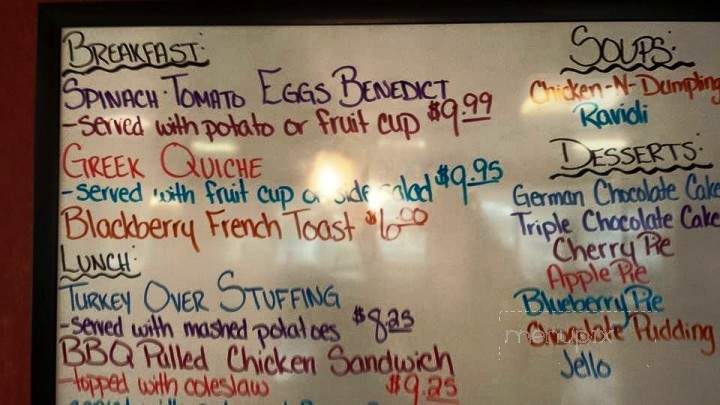 BREAKFAST:
SPINACH-TOMATO EGGS BENEDICT
-served with potato or fruit cup $9.99
GREEK QUICHE
-served with fruit cup or side salad $9.95
Blackberry French Toast $6.00
LUNCH:
TURKEY OVER STUFFING
-served with mashed potatoes $8.25
BBQ Pulled Chicken Sandwich
-topped with coleslaw $9.25
SOUPS:
Chicken-N-Dumpling
Ravioli
DESSERTS:
German Chocolate Cake
Triple Chocolate Cake
Cherry Pie
Apple Pie
Blueberry Pie
Chocolate Pudding
Jello
menupix